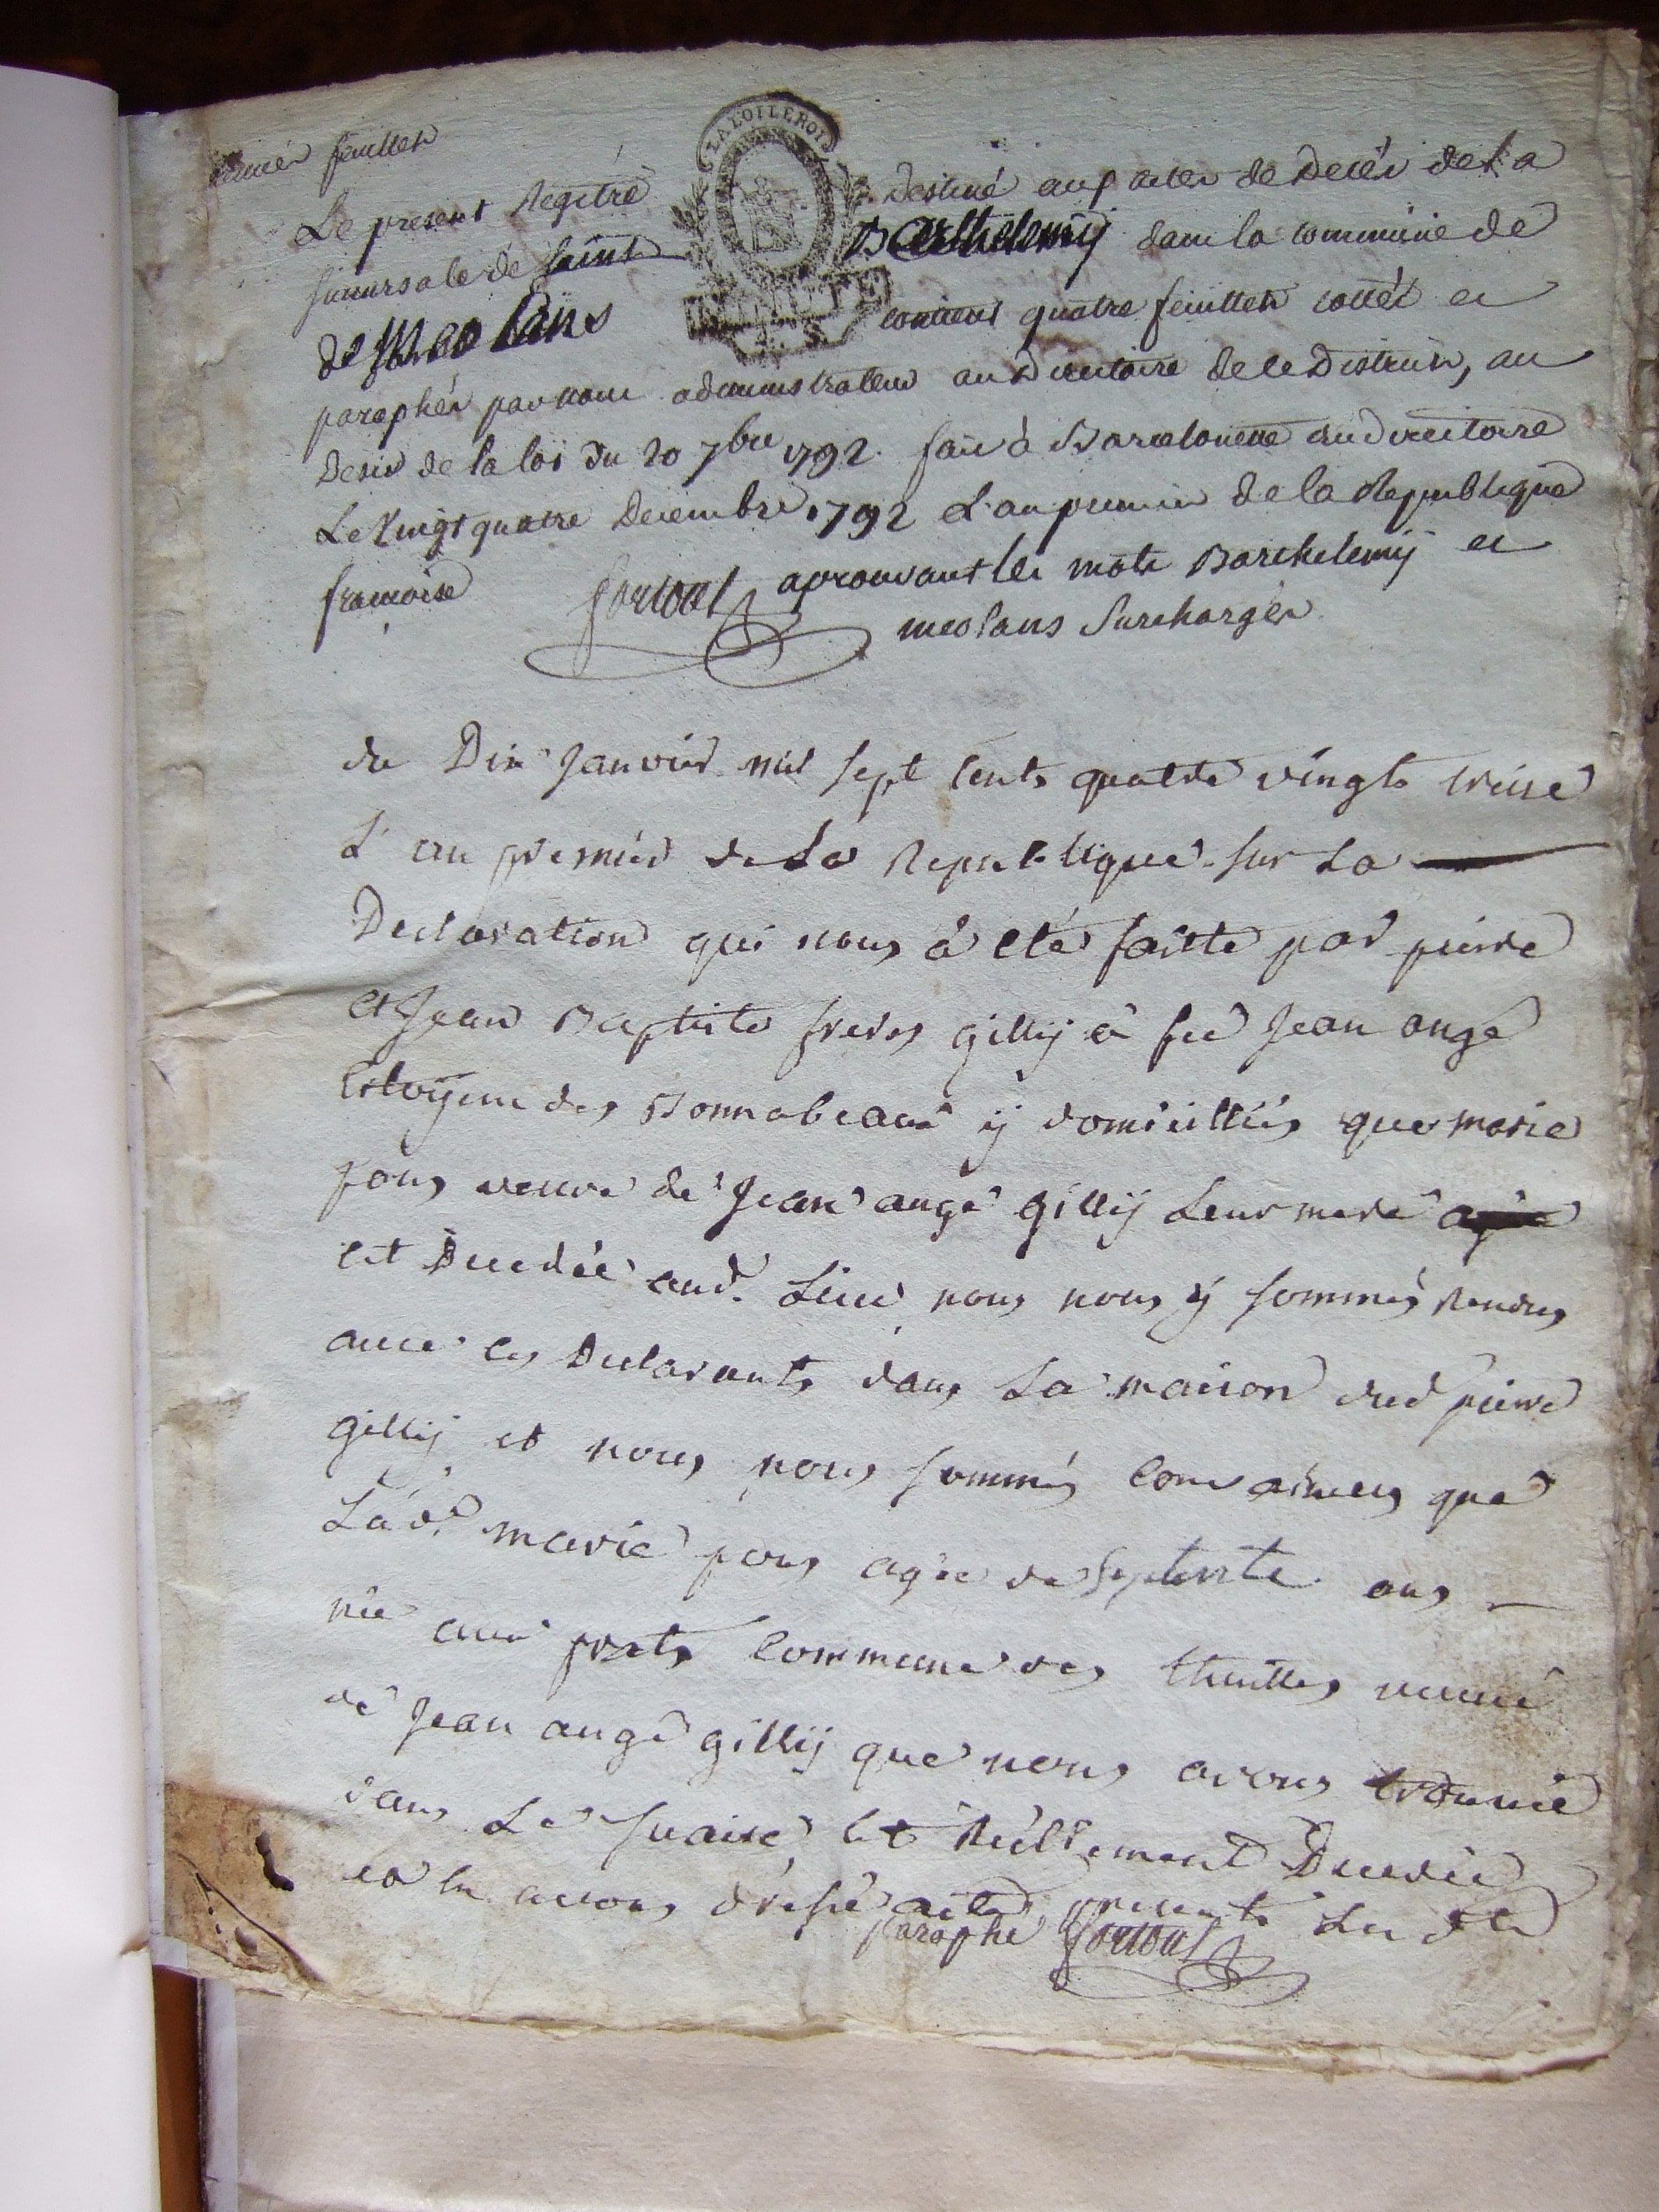 feuillet
LA LOI LE ROI
Le present Regitre destiné aux actes de Decés de la
succursale de Saint Barthelemÿ dans la commune de
de Meolans contient quatre feuillets cottés et
paraphés par nous administrateur au Directoire de ce District, au
Desir de la loi du 20 7bre 1792. fait à Barcelonette au directoire
Le Vingt quatre Decembre 1792 L'an premier de la Republique
francoise fortoul aprouvant les mots Barthelemÿ et
meolans Surchargés
du Dix Janvier mil sept cents quatre vingts treise
L'an premier de La Republique sur La
Declaration qui nous à eté faitte par pierre
et Jean Baptiste freres gillÿ à feu Jean ange
Citoÿens des Bonnabeaux ÿ domicilliés que marie
pons veuve de Jean ange gillÿ Leur mere agée
est Decedée aud. Lieu, nous nous ÿ sommés Rendus
avec les Declarants dans La maison dud pierre
gillÿ et nous nous sommés convaincus que
La de. marie pons agée de septente ans
née aux prats Commune des thuilles veuve
de Jean angé gillÿ que nous avons trouvée
dans Le suaire, est Réellement Decedée
en avons dréssé acte, presents Les de
paraphé fortoul